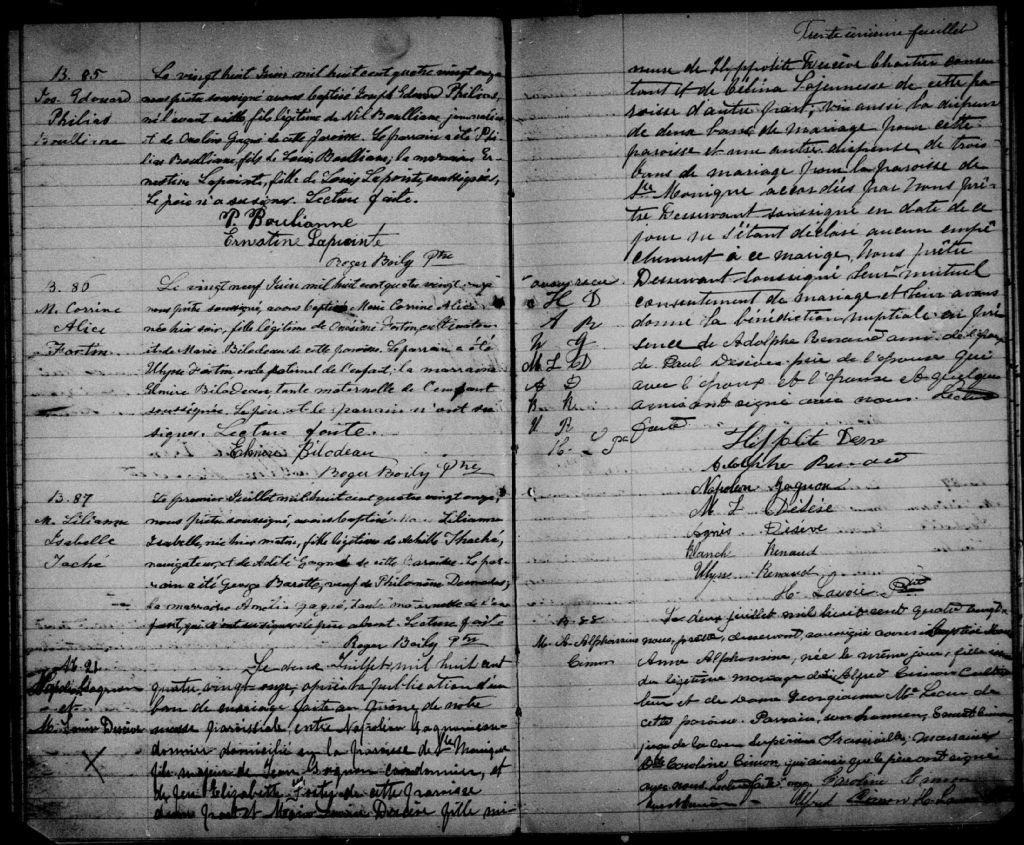 B. 85
Jos. Edouard
Philias
Boullianne
Le vingt huit Juin mil huit cent quatre vingt onze
nous prêtre soussigné avons baptisé Joseph Edouard Philias,
né l'avant veille, fils légitime de Nil Boulliane, journalier
et de Gagné de cette paroisse. Le parrain a été Phi
lias Boulliane, fils de Louis Boulliane, la marraine Er
nestine Lapointe, fille de Louis Lapointe, soussignés,
Le père n'a su signer. Lecture faite.
P Boulianne
Ernestine Lapointe
Roger Boily Ptre
B. 86
M. Corrine
Alice
Fortin
Le vingt neuf Juin mil huit cent quatre vingt onze
nous prêtre soussigné, avons baptisé Marie Corrine Alice
née hier soir, fille légitime de Onésime Fortin,
et de Marie Bilodeau de cette paroisse. Le parrain a été
Ulysse Fortin oncle paternel de l'enfant; la marraine
Elmire Bilodeau, tante maternelle de l'enfant
soussignée. Le père et le parrain n'ont su
signer. Lecture faite.
Elmire Bilodeau
Roger Boily Ptre
B. 87
M. Lilianne
Isabelle
Taché
Le premier Juillet mil huit cent quatre vingt onze,
nous prêtre soussigné, avons baptisé Marie Lilianne
Isabelle, née hier matin, fille légitime de Achille Thaché,
navigateur, et de Adèle Gagné de cette Paroisse. Le par-
rain a été George Barette, veuf de Philomène
la marraine Amélia Gagné, tante maternelle de l'en
fant, qui n'ont su signer, le père absent. Lecture faite
Roger Boily Ptre
M. 21
Napoléon Gagnon
et
M. Louise Dessève
X
Le deux Juillet mil huit cent
quatre vingt onze, après la publication d'un
ban de mariage faite au prône de notre
messe paroissiale, entre Napoléon Gagnon cor-
donnier domicilié en la paroisse de Ste Monique
fils majeur de Jean Gagnon cordonnier, et
de feu Elizabeth de cette paroisse
d'une part et Marie Louise Desève fille mi-
Trente unième feuillet
neure de Hyppolite Desève Charretier consen
tant et de Célina Lajeunesse de cette pa
roisse d'autre part; vu aussi la dispense
de deux bans de mariage pour cette
paroisse et une autre dispense de trois
bans de mariage pour la paroisse de
Ste Monique accordés par Nous Prê-
tre Desservant soussigné en date de ce
jour ne s'étant déclaré aucun empê
chement à ce mariage, Nous prêtre
Desservant soussigné leur mutuel
consentement de mariage et leur avons
donné la bénédiction nuptiale en pré
sence de Adolphe Renaud ami de l'époux
de Paul Desève père de l'épouse qui
avec l'époux et l'épouse et quelques
amis ont signé avec nous. Lecture
faite
H D
A R
N G
M L D
A D
B. R.
U R
Hippolite Deseve
Adolphe Renaud
Napoleon Gagnon
M L Désèse
Agnès Désève
Blanch Renaud
Ulysse Renaud
H. Lavoie Ptre
B-88
M. A. Alphonsine
Cimon
Le deux juillet mil huit cent quatre vingt
nous, prêtre, desservant, soussigné avons baptisé Marie
Anne Alphonsine, née le même jour, fille
du légitime mariage de Alfred Cimon Culti
teur et de dame Georgianna McLean de
cette paroisse. Parrain,
juge de la cour Supérieure Fraserville, marraine
Dlle Caroline Cimon, qui ainsi que le père ont signé
avec nous. Lecture faite. Caroline Cimon
Alfred Cimon H. Lavoie